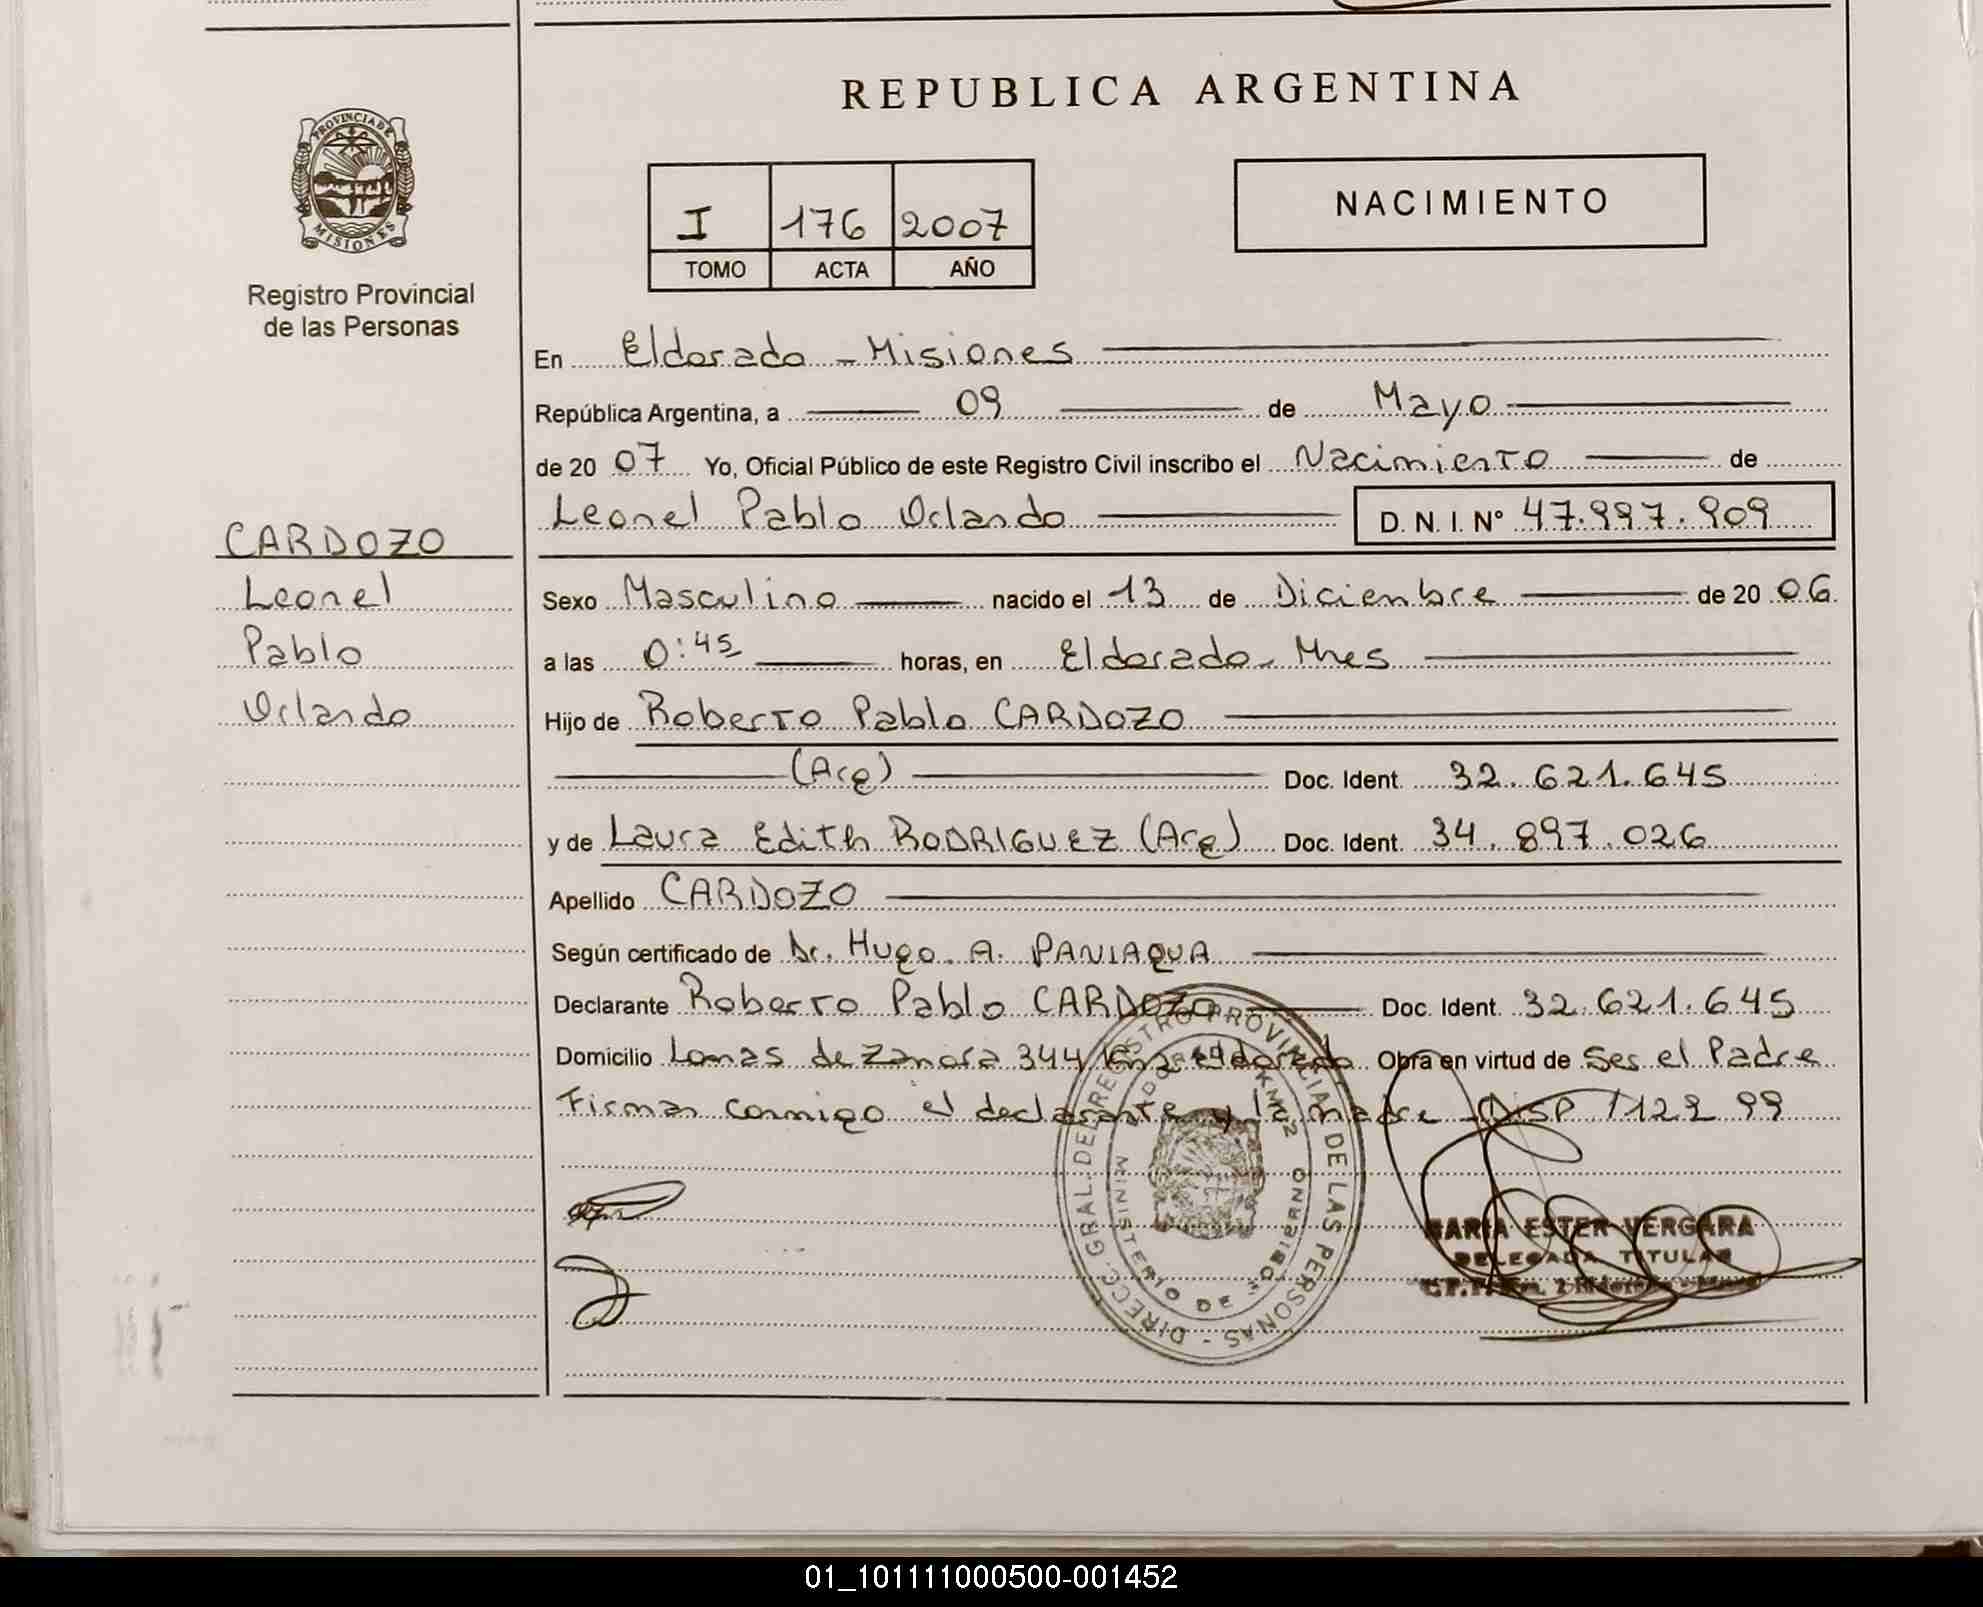 REPUBLICA ARGENTINA
PROVINCIA DE
MISIONES
Registro Provincial
de las Personas
I 176 2007
TOMO ACTA AÑO
NACIMIENTO
En Eldorado - Misiones
República Argentina, a 09 de Mayo
de 20 07 Yo, Oficial Público de este Registro Civil inscribo el Nacimiento de
Leonel Pablo Orlando D. N. I. N° 47.997.909
CARDOZO
Leonel
Pablo
Orlando
Sexo Masculino nacido el 13 de Diciembre de 20 06
a las 0:45 horas, en Eldorado - Mnes
Hijo de Roberto Pablo CARDOZO
(Arg) Doc. Ident. 32.621.645
y de Laura Edith RODRIGUEZ (Arg) Doc. Ident. 34.897.026
Apellido CARDOZO
Según certificado de Dr. Hugo A. PANIAGUA
Declarante Roberto Pablo CARDOZO Doc. Ident. 32.621.645
Domicilio Lomas de Zamora 344 Km 2 Eldorado Obra en virtud de Ser el Padre
Firman conmigo el declarante y la madre - DISP 1122 99
DIRECC. GRAL. DEL REGISTRO PROVINCIAL DE LAS PERSONAS -
MINISTERIO DE GOBIERNO
ELDORADO KM 2
MARIA ESTER VERGARA
DELEGADA TITULAR
01_101111000500-001452